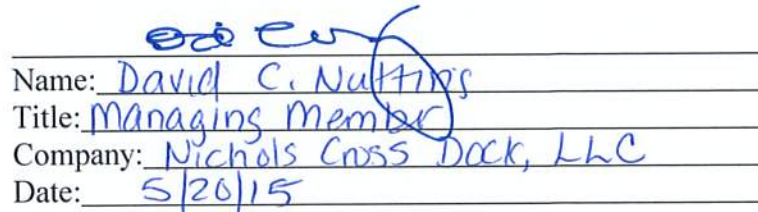 Name: David C. Nutting
Title: Managing Member
Company: Nichols Cross Dock, LLC
Date: 5/20/15